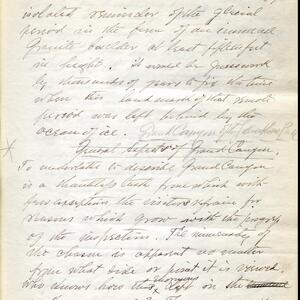 isolated reminder of the glacial
period in the form of an immense
Granite boulder at least fifteen feet
in height. it would be guesswork
by thousands of years to fix the time
when this land mark of that remote
period was left behind by the
ocean of ice. Grand Canyon of the
General Aspects of Grand Canyon
To undertake to describe Grand Canyon
is a thankless task from which with
few exceptions the visitors refrain for
reasons which grow with the progress
of the inspection. The immensity of
the chasm is apparent no matter
from what side or point it is viewed.
who knows how this left on the